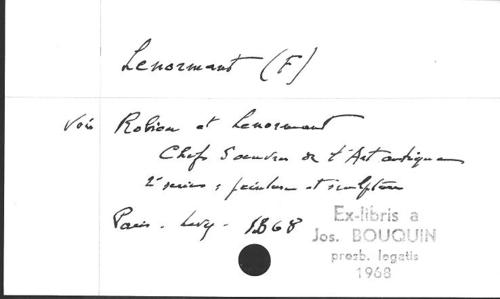 Lenormant (F)
Voir Robiou et Lenormant
Chefs d'œuvre de l'Art antique
2e série : peinture et sculpture
Paris - Levy - 1868
Ex-libris a
Jos. BOUQUIN
presb. legatis
1968